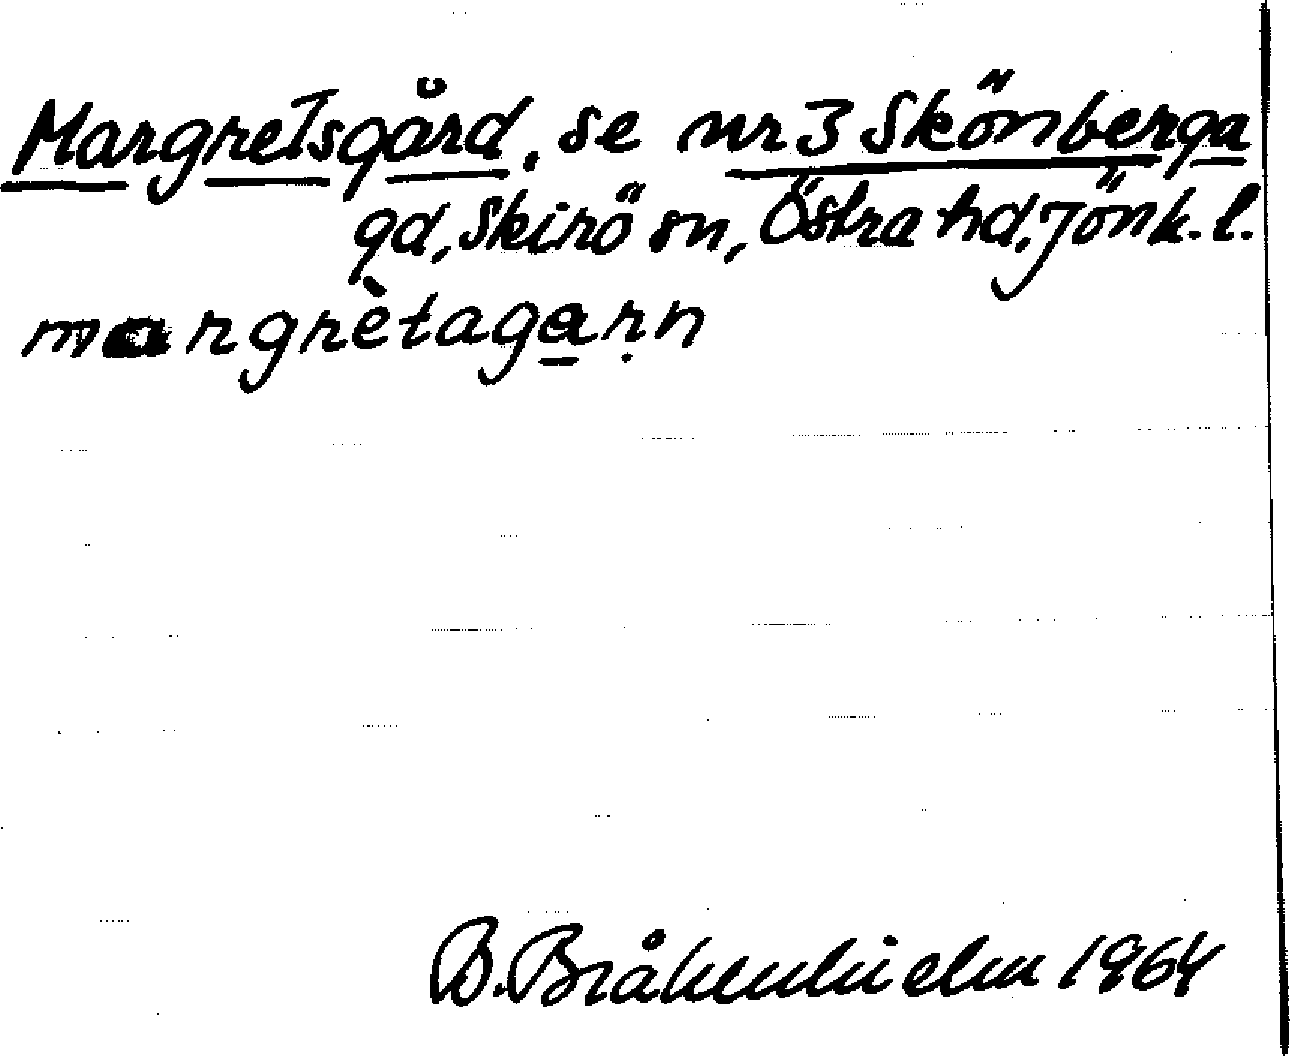 Margretsgård, se nr 3 Skönberga
gd, Skirö sn, Östra hd, Jönk. l.
margrètagaṛn
B. Bråkenhielm 1964